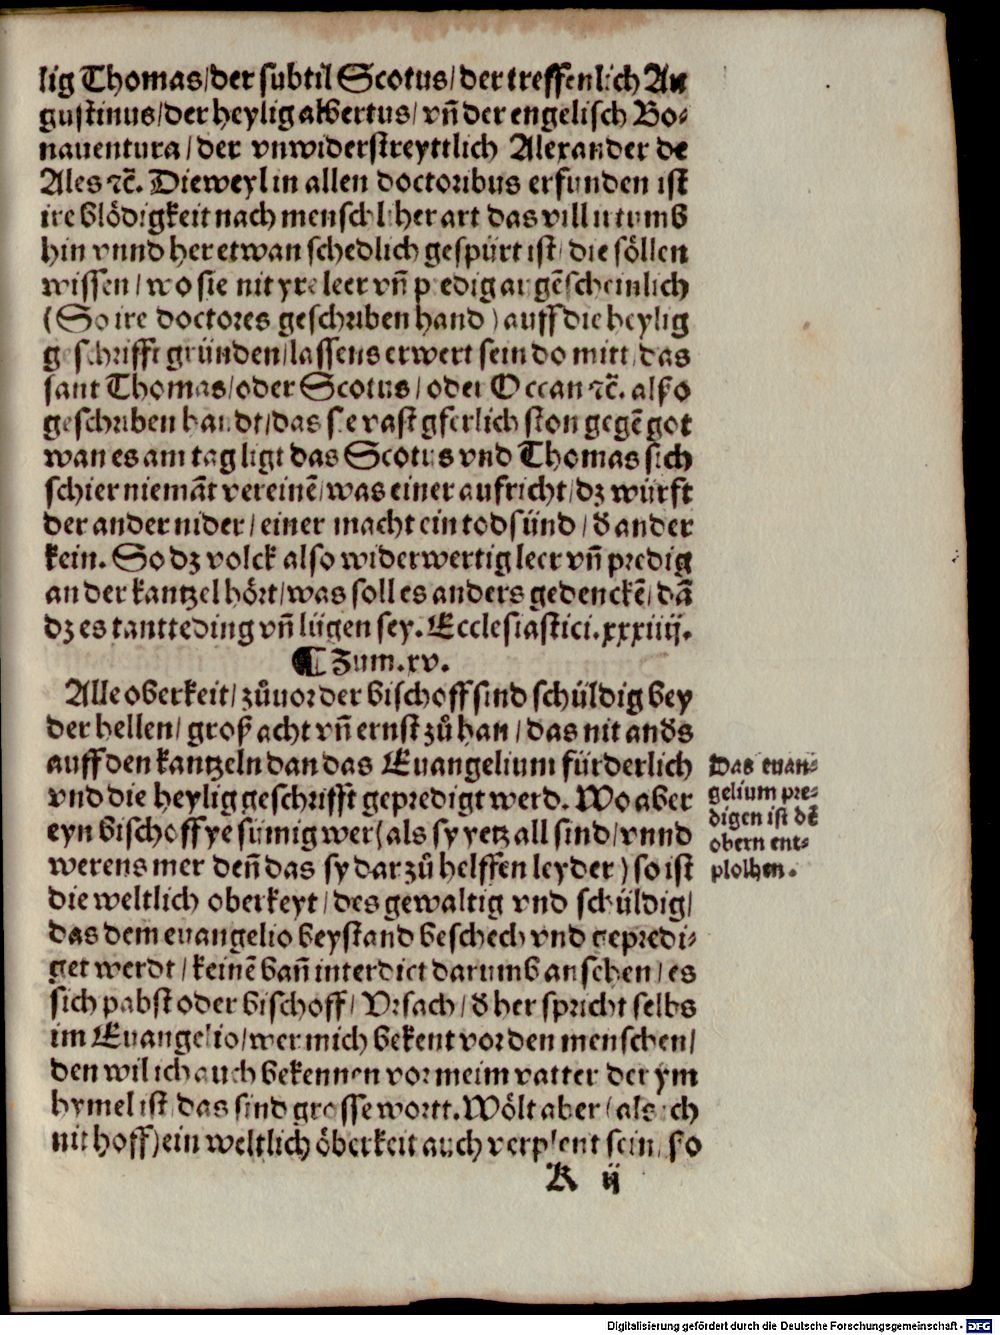 lig Thomas/der subtil Scotus/der treffenlich Au
gustinus/der heylig albertus/ vn̄ der engelisch Bo⸗
nauentura/der vnwiderstreyttlich Alexander de
Ales ⁊c̄. Dieweyl in allen doctoribus erfunden ist
ire blödigkeit nach menschlicher art das vill irtumb
hin vnnd her etwan schedlich gespürt ist/ die söllen
wissen/wo sie nit yre leer vn̄ predig augēscheinlich
(So ire doctores geschriben hand) auff die heylig
geschrifft gründen/lassens erwert sein do mitt/das
sant Thomas/oder Scotus/oder Occan ⁊c̄. also
geschriben handt/das sie vast gferlich ston gegē got
wan es am tag ligt das Scotus vnd Thomas sich
schier niemāt vereinē/was einer aufricht/dz würft
der ander nider/einer macht ein todsünd/d̄ ander
kein. So dz volck also widerwertig leer vn̄ predig
an der kantzel hört/was soll es anders gedenckē/dā
dz es tantteding vn̄ lügen sey. Ecclesiastici.xxxiiij.
¶ Zum.xv.
Alle oberkeit/zůuor der bischoff sind schüldig bey
der hellen/groß acht vn̄ ernst zů han/das nit and̄s
auff den kantzeln dan das Euangelium fürderlich
vnd die heylig geschrifft gepredigt werd. Wo aber
eyn bischoff ye sümig wer(als sy yetz all sind/vnnd
werens mer den̄ das sy dar zů helffen leyder) so ist
die weltlich oberkeyt/des gewaltig vnd schüldig/
das dem euangelio beystand beschech vnd gepredi⸗
get werdt/keinē ban̄ interdict darumb ansehen/es
sich pabst oder bischoff/ Vrsach/d̄ her spricht selbs
im Euangelio/wer mich bekent vor den menschen/
den wil ich auch bekennen vor meim vatter der ym
hymel ist/das sind grosse wortt. Wölt aber (als ich
nit hoff)ein weltlich öberkeit auch verplent sein/so
K ij
Das euan⸗
gelium pre⸗
digen ist dē
obern ent⸗
plolhen.
Digitalisierung gefördert durch die Deutsche Forschungsgemeinschaft - DFG